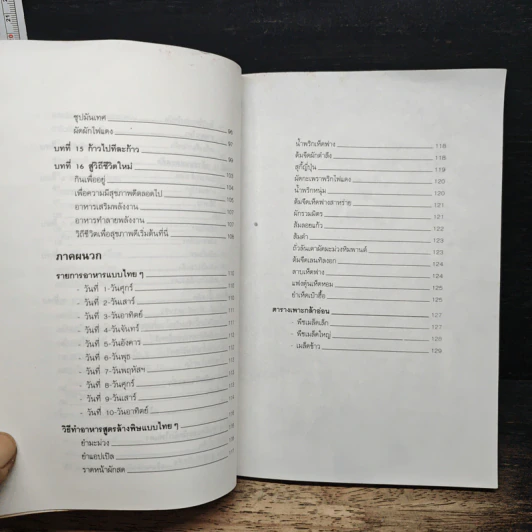 ซุปมันเทศ 96
ผัดผักไฟแดง 97
บทที่ 15 ก้าวไปทีละก้าว 99
บทที่ 16 สู่วิถีชีวิตใหม่ 103
กินเพื่ออยู่ 104
เพื่อความมีสุขภาพดีตลอดไป 106
อาหารเสริมพลังงาน 107
อาหารทำลายพลังงาน
วิถีชีวิตเพื่อสุขภาพดีเริ่มต้นที่นี่
ภาคผนวก
รายการอาหารแบบไทย ๆ
- วันที่ 1-วันศุกร์
- วันที่ 2-วันเสาร์
- วันที่ 3-วันอาทิตย์
- วันที่ 4-วันจันทร์
- วันที่ 5-วันอังคาร
- วันที่ 6-วันพุธ
- วันที่ 7-วันพฤหัสฯ
- วันที่ 8-วันศุกร์
- วันที่ 9-วันเสาร์
- วันที่ 10-วันอาทิตย์
วิธีทำอาหารสูตรล้างพิษแบบไทย ๆ
ยำมะม่วง
ยำแอปเปิล
ราดหน้าผักสด
น้ำพริกเห็ดฟาง 118
ต้มจืดผักตำลึง 118
สุกี้ญี่ปุ่น 119
ผัดกะเพราพริกไฟแดง 120
น้ำพริกหนุ่ม 120
ต้มจืดเห็ดฟางสาหร่าย 121
ผักรวมมิตร 121
ส้มลอยแก้ว 122
ส้มตำ 123
ถั่วลันเตาผัดมะม่วงหิมพานต์ 123
ต้มจืดเลนทิลงอก 124
ลาบเห็ดฟาง 124
แฟงตุ๋นเห็ดหอม 125
ยำเห็ดเป๋าฮื้อ 126
ตารางเพาะกล้าอ่อน 127
- พืชเมล็ดเล็ก 127
- พืชเมล็ดใหญ่ 128
- เมล็ดข้าว 129